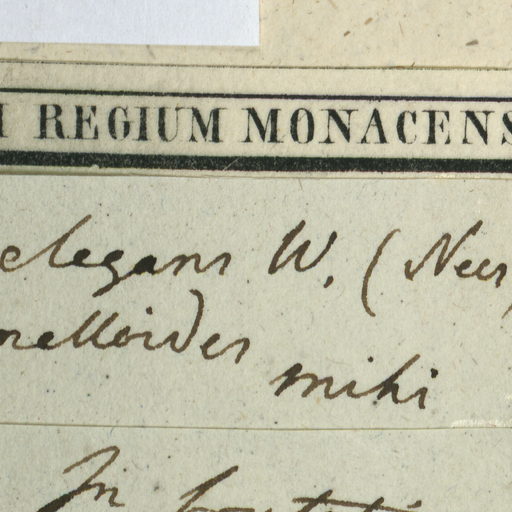 REGIUM MONACENS
elegans W. (Nees
nelloides
mihi
In